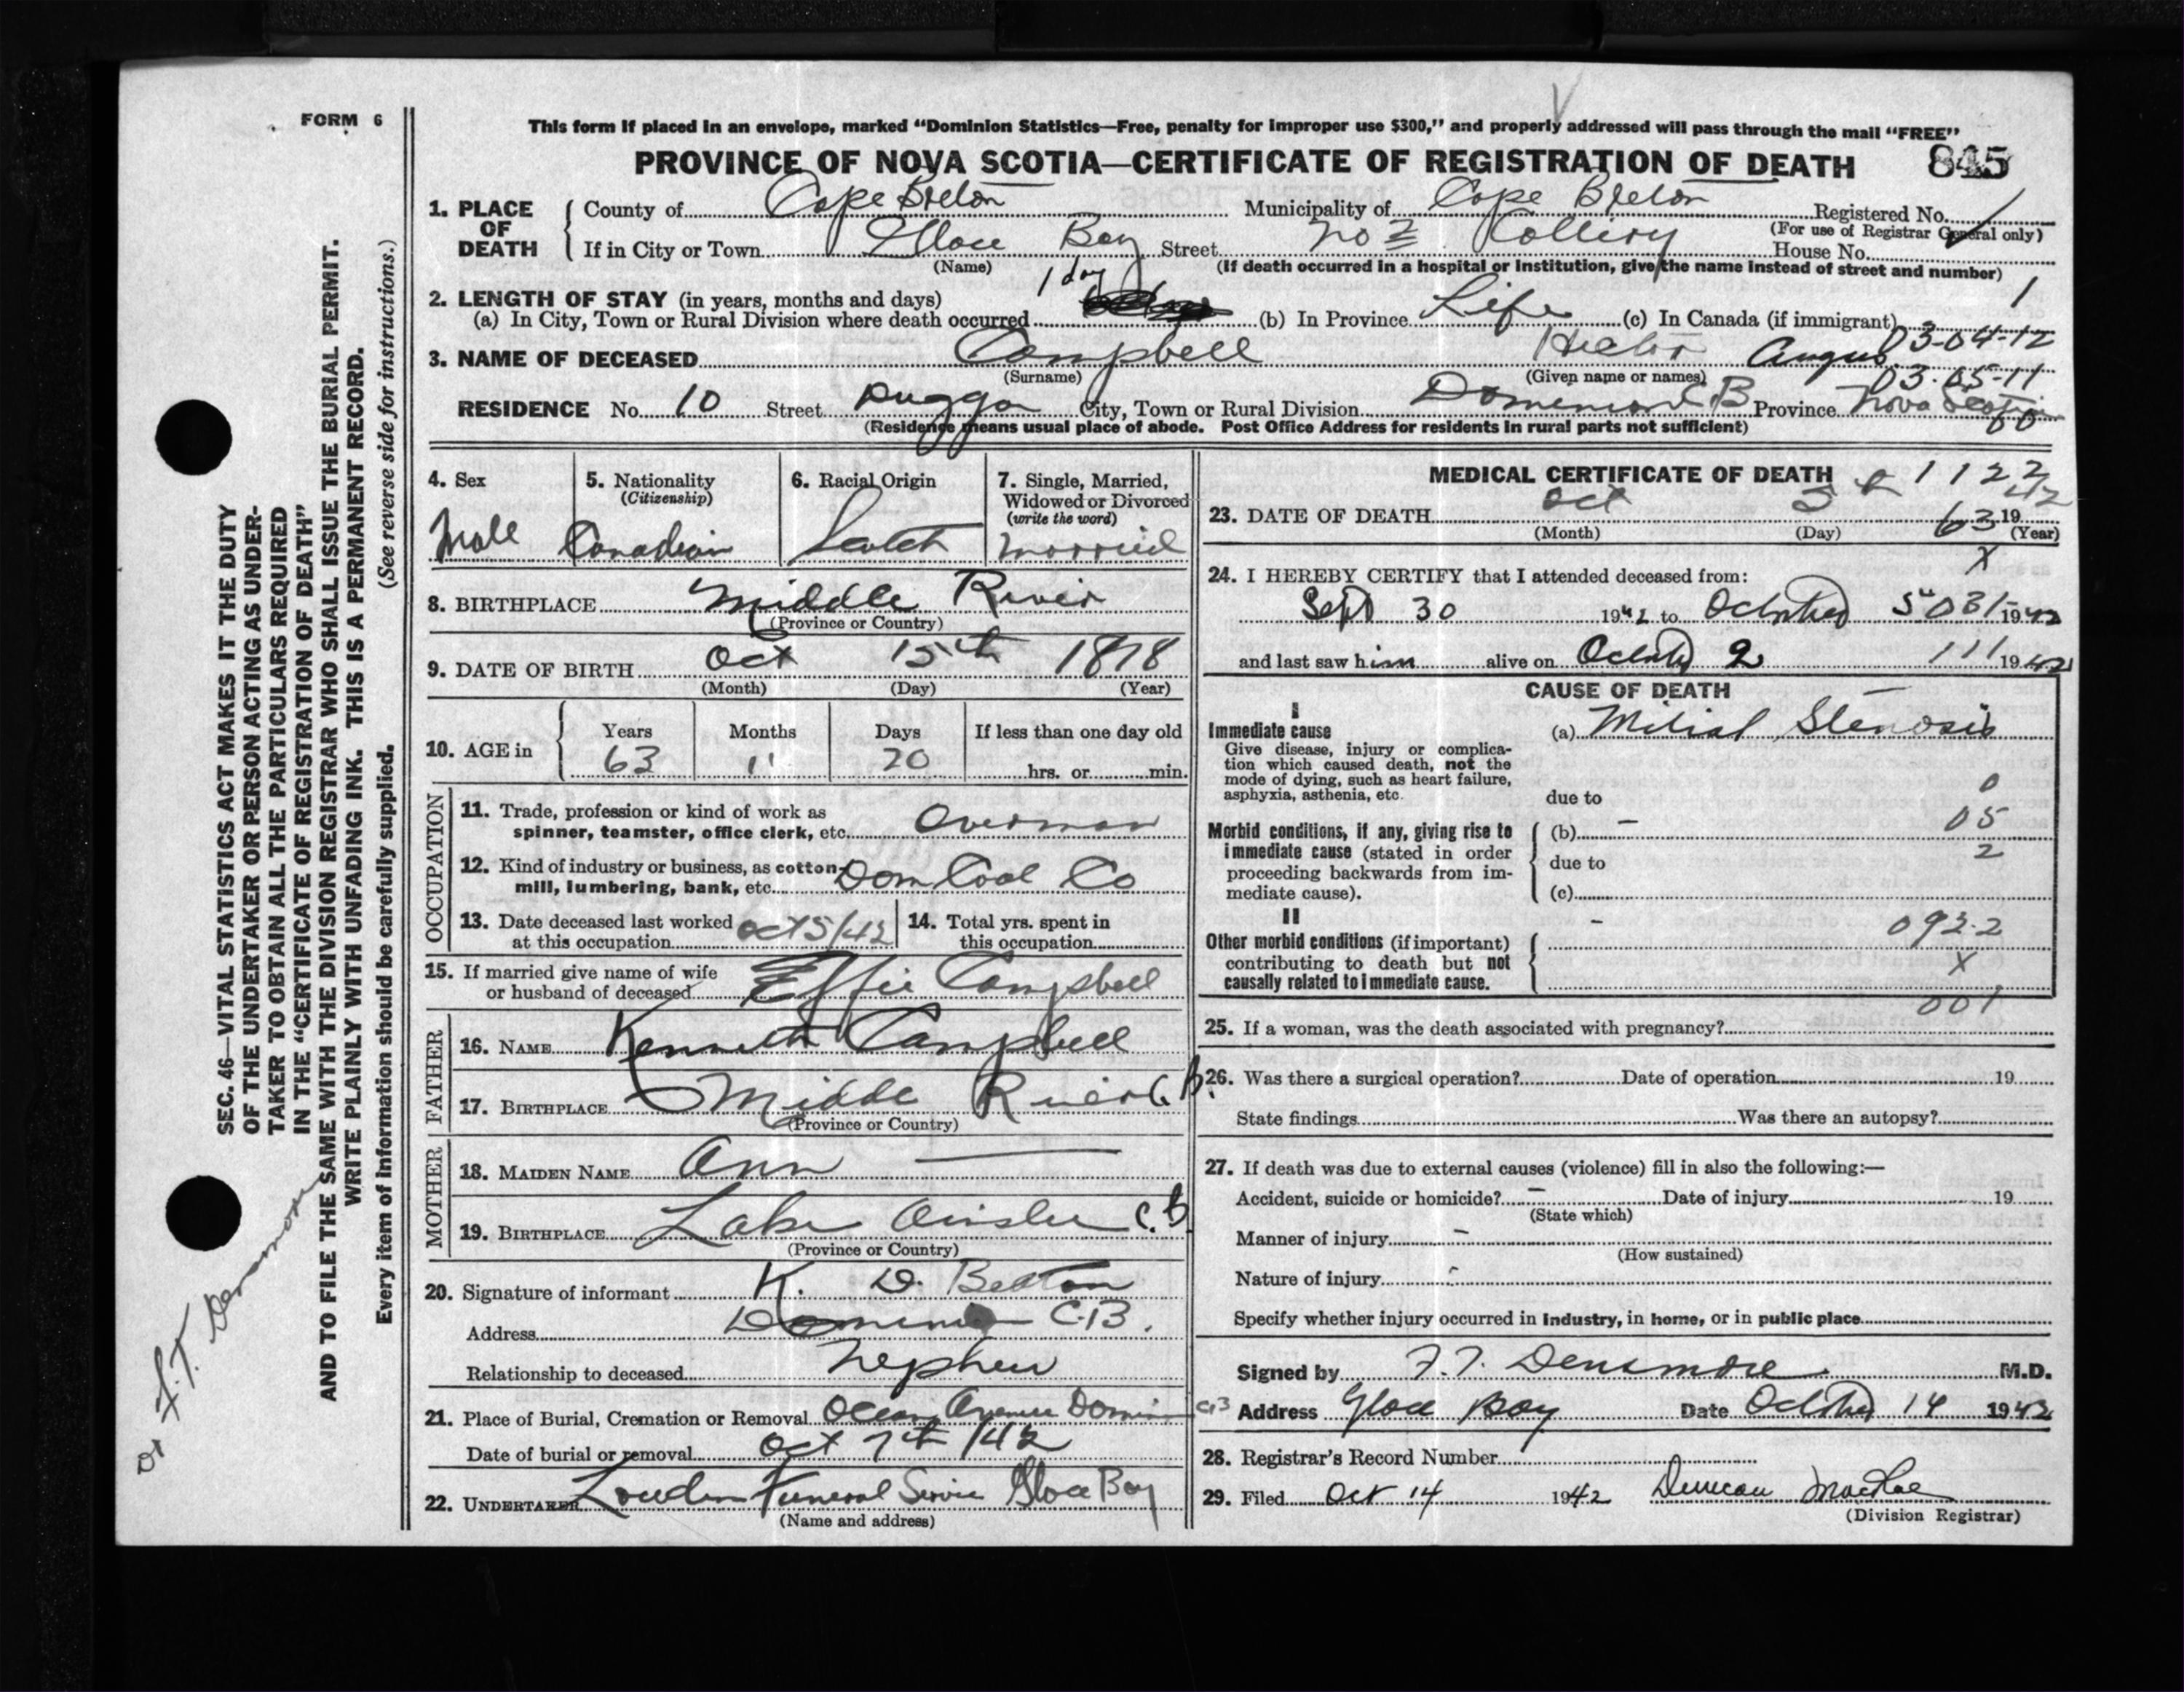 FORM 6
This form if placed in an envelope, marked "Dominion Statistics—Free, penalty for improper use $300," and properly addressed will pass through the mail "FREE"
PROVINCE OF NOVA SCOTIA—CERTIFICATE OF REGISTRATION OF DEATH 845
1. PLACE OF DEATH
County of Cape Breton Municipality of Cape Breton Registered No.
(For use of Registrar General only)
If in City or Town Glace Bay Street No 2 Colliery House No.
(Name) (If death occurred in a hospital or institution, give the name instead of street and number)
2. LENGTH OF STAY (in years, months and days) 1 day 1
(a) In City, Town or Rural Division where death occurred (b) In Province Life (c) In Canada (if immigrant)
03-04-12
3. NAME OF DECEASED Campbell Hector Angus
(Surname) (Given name or names) 03-05-11
RESIDENCE No. 10 Street Duggan City, Town or Rural Division Dominion C.B Province Nova Scotia
(Residence means usual place of abode. Post Office Address for residents in rural parts not sufficient)
4. Sex Male
5. Nationality (Citizenship) Canadian
6. Racial Origin Scotch
7. Single, Married, Widowed or Divorced (write the word) Married
8. BIRTHPLACE Middle River
(Province or Country)
9. DATE OF BIRTH Oct 15th 1878
(Month) (Day) (Year)
10. AGE in Years 63 Months 11 Days 20 If less than one day old hrs. or min.
OCCUPATION
11. Trade, profession or kind of work as spinner, teamster, office clerk, etc. Overman
12. Kind of industry or business, as cotton mill, lumbering, bank, etc. Dom Coal Co
13. Date deceased last worked at this occupation Oct 5/42
14. Total yrs. spent in this occupation
15. If married give name of wife or husband of deceased Effie Campbell
FATHER
16. NAME Kenneth Campbell
17. BIRTHPLACE Middle River C.B.
(Province or Country)
MOTHER
18. MAIDEN NAME Ann —
19. BIRTHPLACE Lake Ainslie C.B
(Province or Country)
20. Signature of informant K. D. Beaton
Address Dominion C.B.
Relationship to deceased Nephew
21. Place of Burial, Cremation or Removal Ocean Avenue Dominion C.B
Date of burial or removal Oct 7th /42
22. UNDERTAKER Funeral Service Glace Bay
(Name and address)
MEDICAL CERTIFICATE OF DEATH 1122
23. DATE OF DEATH Oct 5th 19 42
(Month) (Day) 63 (Year)
X
24. I HEREBY CERTIFY that I attended deceased from:
Sept 30 1942 to October 5th 031 1942
and last saw him alive on October 2 111 1942
CAUSE OF DEATH
I
Immediate cause
Give disease, injury or complication which caused death, not the mode of dying, such as heart failure, asphyxia, asthenia, etc.
(a) Mitral Stenosis
0
due to
05
Morbid conditions, if any, giving rise to immediate cause (stated in order proceeding backwards from immediate cause).
(b) –
2
due to
(c)
II
Other morbid conditions (if important) contributing to death but not causally related to immediate cause.
– 092.2
X
001
25. If a woman, was the death associated with pregnancy?
26. Was there a surgical operation? Date of operation 19
State findings Was there an autopsy?
27. If death was due to external causes (violence) fill in also the following:—
Accident, suicide or homicide? – Date of injury 19
(State which)
Manner of injury –
(How sustained)
Nature of injury –
Specify whether injury occurred in industry, in home, or in public place
Signed by F.T. Densmore M.D.
Address Glace Bay Date October 14 1942
28. Registrar's Record Number
29. Filed Oct 14 1942 Duncan MacRae
(Division Registrar)
SEC. 46—VITAL STATISTICS ACT MAKES IT THE DUTY
OF THE UNDERTAKER OR PERSON ACTING AS UNDER-
TAKER TO OBTAIN ALL THE PARTICULARS REQUIRED
IN THE "CERTIFICATE OF REGISTRATION OF DEATH"
AND TO FILE THE SAME WITH THE DIVISION REGISTRAR WHO SHALL ISSUE THE BURIAL PERMIT.
WRITE PLAINLY WITH UNFADING INK. THIS IS A PERMANENT RECORD.
Every item of information should be carefully supplied. (See reverse side for instructions.)
Dr F.T. Densmore